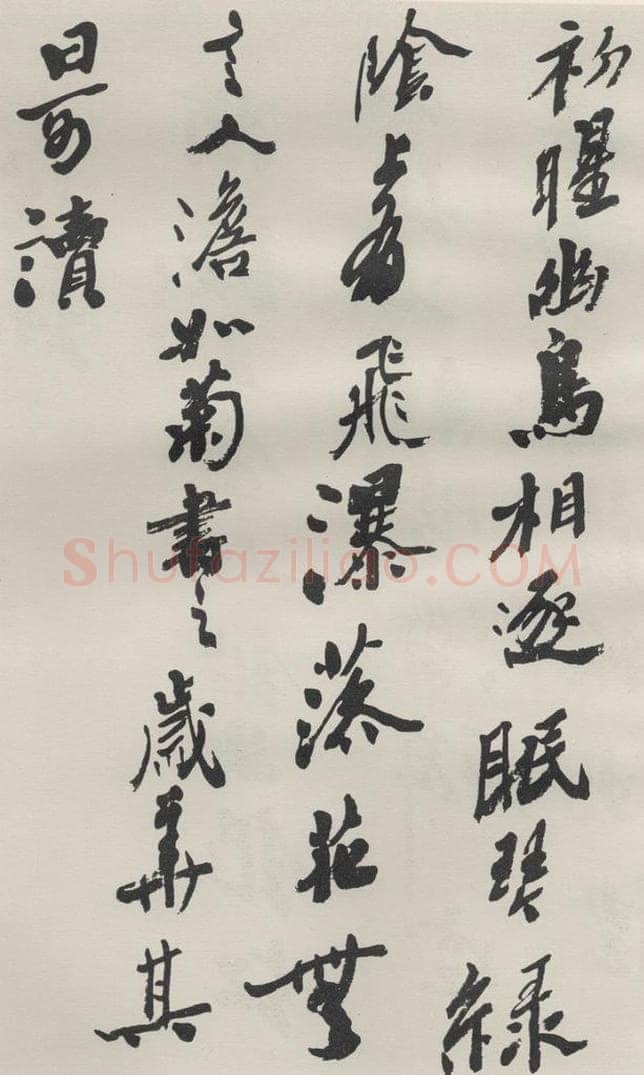 初晴幽鳥相逐眠琴綠
陰上有飛瀑落花無
言人澹如菊書之歲華其
曰可讀
Shufaziliao.COM